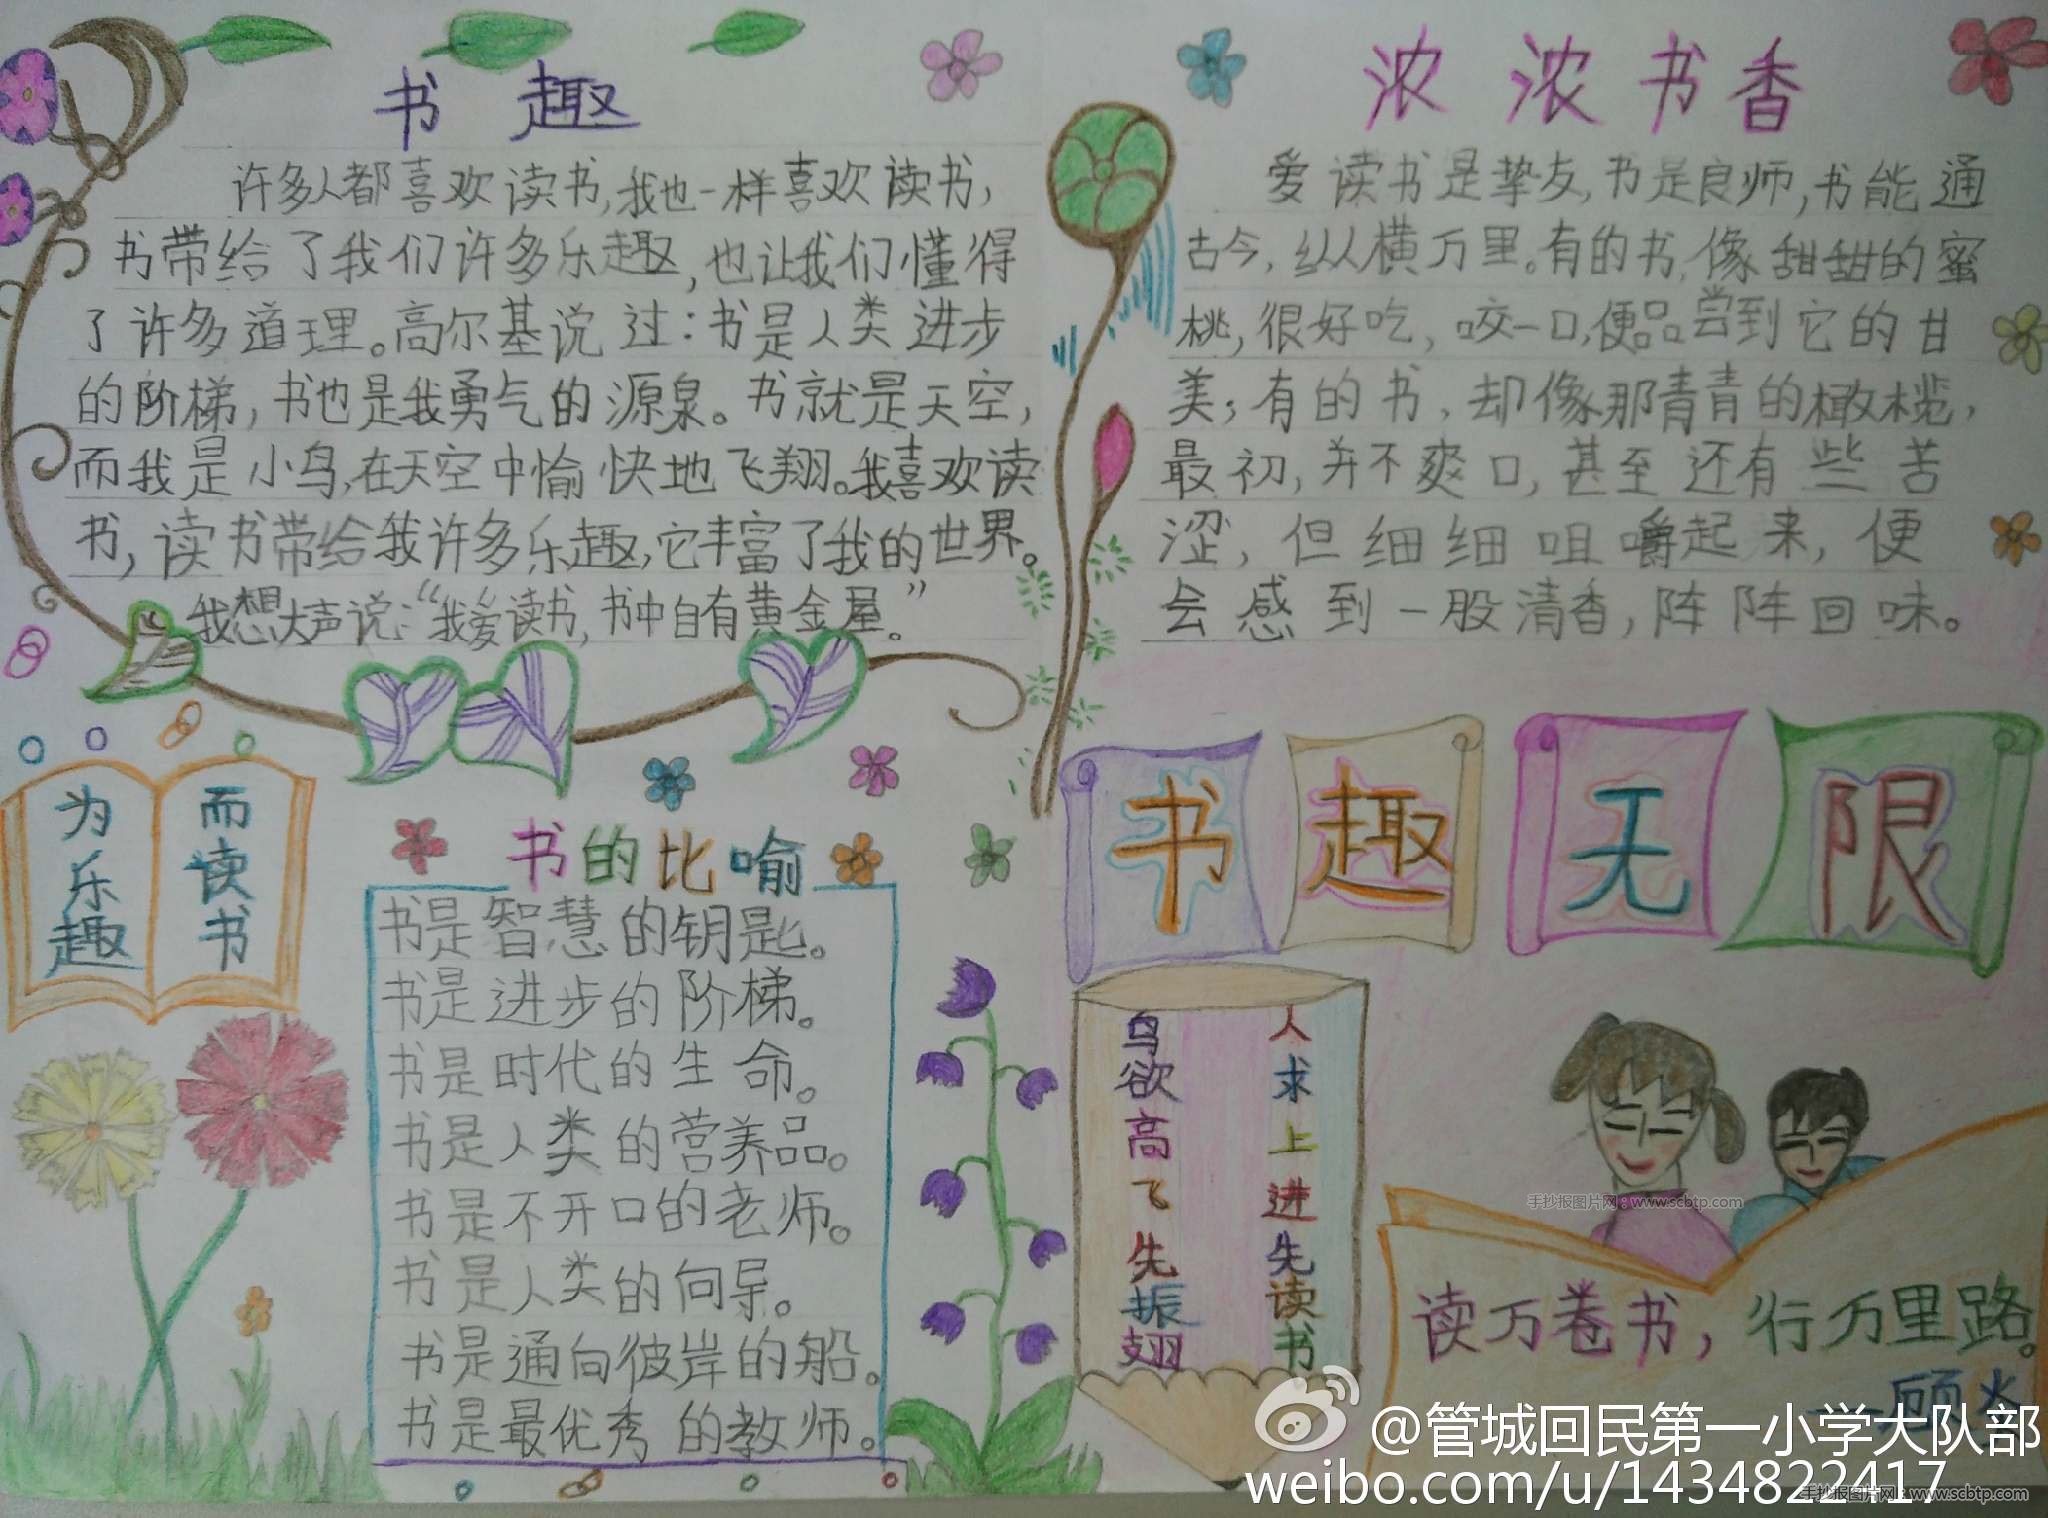 书趣
许多人都喜欢读书,我也一样喜欢读书,
书带给了我们许多乐趣,也让我们懂得
了许多道理。高尔基说过:书是人类进步
的阶梯,书也是我勇气的源泉。书就是天空,
而我是小鸟,在天空中愉快地飞翔。我喜欢读
书,读书带给我许多乐趣,它丰富了我的世界。
我想大声说:“我爱读书,书中自有黄金屋。”
浓浓书香
爱读书是挚友,书是良师,书能通
古今,纵横万里。有的书,像甜甜的蜜
桃,很好吃,咬一口,便品尝到它的甘
美;有的书,却像那青青的橄榄,
最初,并不爽口,甚至还有些苦
涩,但细细咀嚼起来,便
会感到一股清香,阵阵回味。
为乐趣
而读书
书的比喻
书是智慧的钥匙。
书是进步的阶梯。
书是时代的生命。
书是人类的营养品。
书是不开口的老师。
书是人类的向导。
书是通向彼岸的船。
书是最优秀的教师。
书趣无限
鸟欲高飞先振翅
人求上进先读书
手抄报图片网:www.scbtp.com
读万卷书,行万里路。
——顾炎
@管城回民第一小学大队部
weibo.com/u/1434822417
手抄报图片网:www.scbtp.com